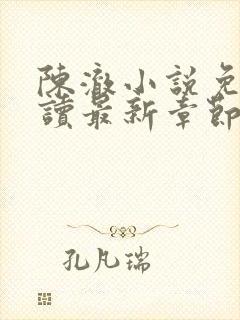 陳澈小說免
讀最新章節
孔凡瑞